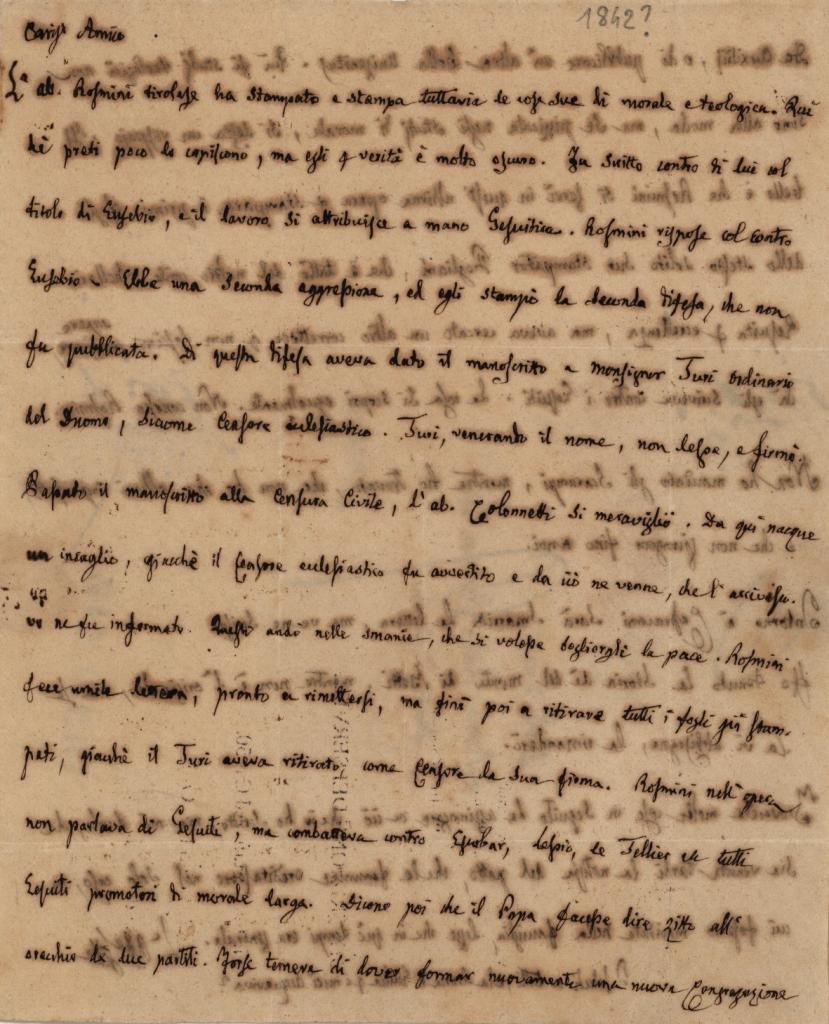 1842?
Cariss Amico
L'ab. Rosmini tirolese ha stampato e stampa tuttavia le cose sue di morale e teologica. Qui
li preti poco lo capiscono, ma egli p verità è molto oscuro. Fu scritto contro di lui col
titolo di Eusebio, e il lavoro si attribuisce a mano Gesuitica. Rosmini rispose col contro
Eusebio. Ebbe una seconda aggressione, ed egli stampò la seconda difesa, che non
fu pubblicata. Di questa difesa aveva dato il manoscritto a Monsignor Turi ordinario
del Duomo, siccome Censore eclesiastico. Turi, venerando il nome, non lesse, e firmò.
Passato il manoscritto alla Censura Civile, l'ab. Colonnetti si meravigliò. Da qui nacque
un incaglio, giacchè il Censore eclesiastico fu avvertito e da ciò ne venne, che l'arcivesco-
vo ne fu informato. Questi andò nelle smanie, che si volesse togliergli la pace. Rosmini
fece umile lettera, pronto a rimettersi, ma finì poi a ritirare tutti i fogli già stam-
pati, giacchè il Turi aveva ritirato come Censore la sua firma. Rosmini nell'opera
non parlava di Gesuiti, ma combatteva contro Escobar, Lessio, Le Tellier tutti
Gesuiti promotori di morale larga. Dicono poi che il Papa facesse dire zitto all'
orecchio di due partiti. Forse temeva di dover formar nuovamente una nuova Congregazione